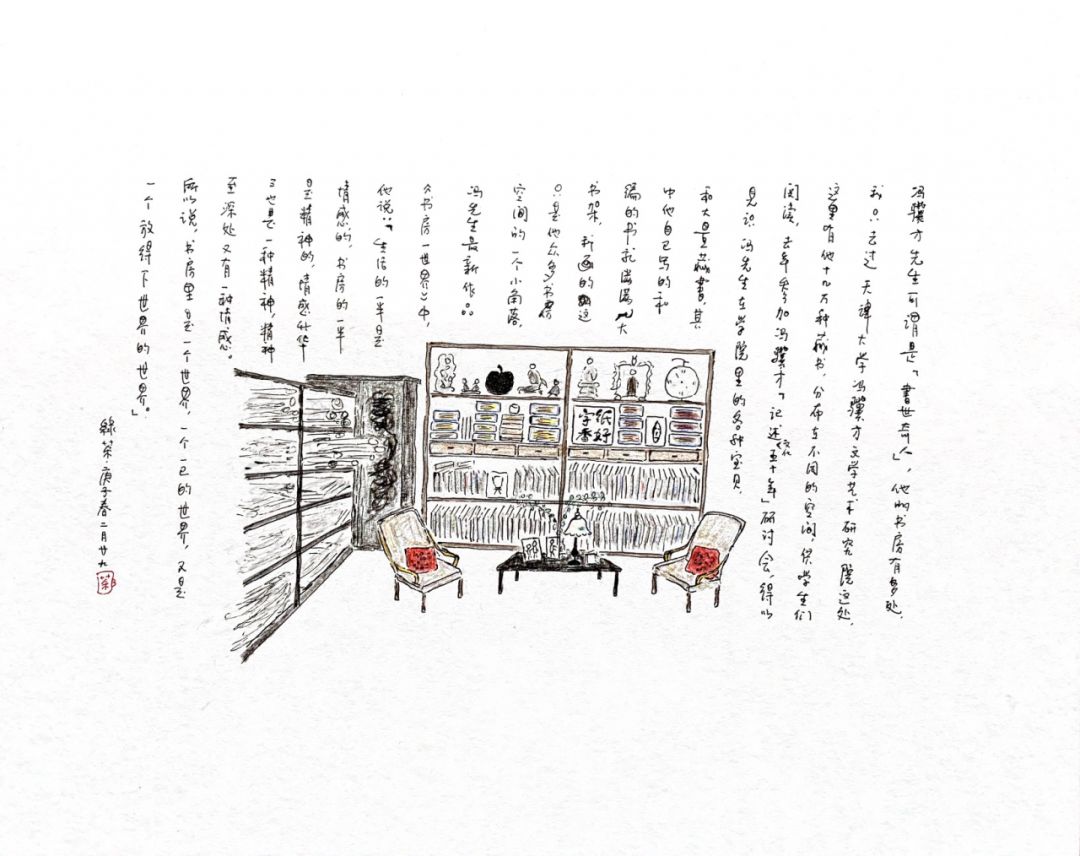 冯骥才先生可谓是「書世奇人」,他的书房有多处,
我只去过天津大学冯骥才文学艺术研究院这处,
这里有他十几万种藏书,分布在不同的空间,供学生们
阅读,去年参加冯骥才「记述文化五十年」研讨会,得以
见识冯先生在学院里的各种宝贝
和大量藏書,其
中他自己写的和
编的书就满满几大
书架,我画的这
只是他众多书房
空间的一个小角落,
冯先生最新作品
《书房一世界》中,
他说:「生活的一半是
情感的,书房的一半
是精神的,情感升华
了也是一种精神,精神
至深处又有一种情感。
所以说,书房里是一个世界,一个一己的世界,又是
一个放得下世界的世界。」
綠茶 庚子春二月廿九
纸好
字香